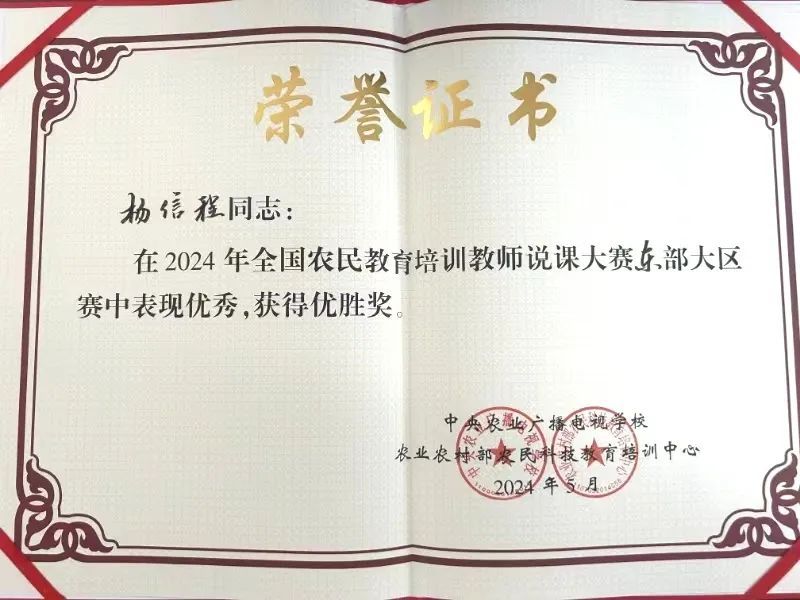 荣誉证书
杨信程同志：
在2024年全国农民教育培训教师说课大赛东部大区
赛中表现优秀，获得优胜奖。
中央农业广播电视学校
农业农村部农民科技教育培训中心
2024年5月
中央农业广播电视学校